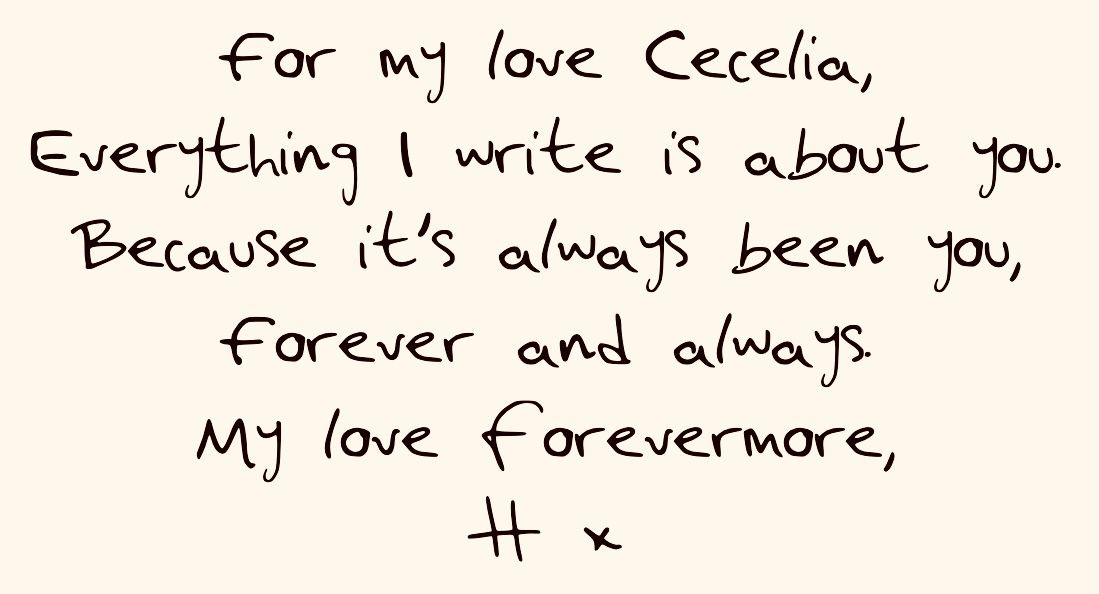 For my love Cecelia,
Everything I write is about you.
Because it's always been you,
forever and always.
My love forevermore,
H x